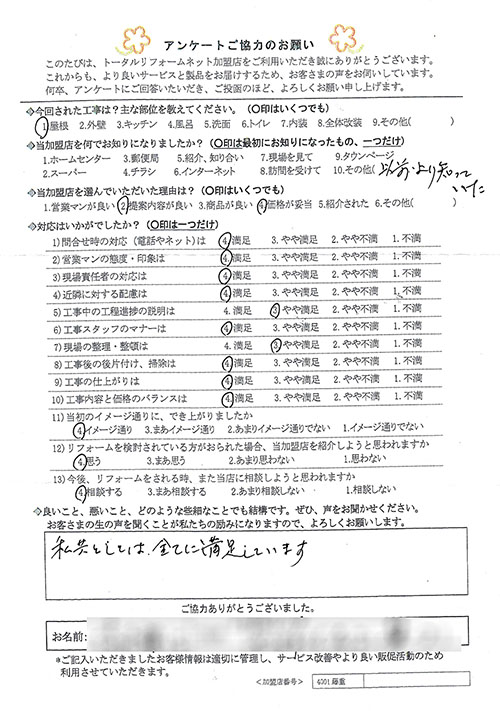 アンケートご協力のお願い
このたびは、トータルリフォームネット加盟店をご利用いただき誠にありがとうございます。
これからも、より良いサービスと製品をお届けするため、お客さまの声をお伺いしています。
何卒、アンケートにご回答いただき、ご投函のほど、よろしくお願い申し上げます。
◆今回された工事は？主な部位を教えてください。（〇印はいくつでも）
1.屋根 2.外壁 3.キッチン 4.風呂 5.洗面 6.トイレ 7.内装 8.全体改装 9.その他( )
◆当加盟店を何でお知りになりましたか？（〇印は最初にお知りになったもの、一つだけ）
1.ホームセンター 3.郵便局 5.紹介、知り合い 7.現場を見て 9.タウンページ
2.スーパー 4.チラシ 6.インターネット 8.訪問を受けて 10.その他( 以前より知って
いた
◆当加盟店を選んでいただいた理由は？（〇印はいくつでも）
1.営業マンが良い 2.提案内容が良い 3.商品が良い 4.価格が妥当 5.紹介された 6.その他( )
◆対応はいかがでしたか？（〇印は一つだけ）
1)問合せ時の対応（電話やネット）は 4.満足 3.やや満足 2.やや不満 1.不満
2)営業マンの態度・印象は 4.満足 3.やや満足 2.やや不満 1.不満
3)現場責任者の対応は 4.満足 3.やや満足 2.やや不満 1.不満
4)近隣に対する配慮は 4.満足 3.やや満足 2.やや不満 1.不満
5)工事中の工程進捗の説明は 4.満足 3.やや満足 2.やや不満 1.不満
6)工事スタッフのマナーは 4.満足 3.やや満足 2.やや不満 1.不満
7)現場の整理・整頓は 4.満足 3.やや満足 2.やや不満 1.不満
8)工事後の後片付け、掃除は 4.満足 3.やや満足 2.やや不満 1.不満
9)工事の仕上がりは 4.満足 3.やや満足 2.やや不満 1.不満
10)工事内容と価格のバランスは 4.満足 3.やや満足 2.やや不満 1.不満
11)当初のイメージ通りに、でき上がりましたか
4.イメージ通り 3.まあイメージ通り 2.あまりイメージ通りでない 1.イメージ通りでない
12)リフォームを検討されている方がおられた場合、当加盟店を紹介しようと思われますか
4.思う 3.まあ思う 2.あまり思わない 1.思わない
13)今後、リフォームをされる時、また当店に相談しようと思われますか
4.相談する 3.まあ相談する 2.あまり相談しない 1.相談しない
◆良いこと、悪いこと、どのような些細なことでも結構です。ぜひ、声をお聞かせください。
お客さまの生の声を聞くことが私たちの励みになりますので、よろしくお願いします。
私共としては、全てに満足しています
ご協力ありがとうございました。
お名前:
*ご記入いただきましたお客様情報は適切に管理し、サービス改善やより良い販促活動のため
利用させていただきます。
＜加盟店番号＞ 4001藤重